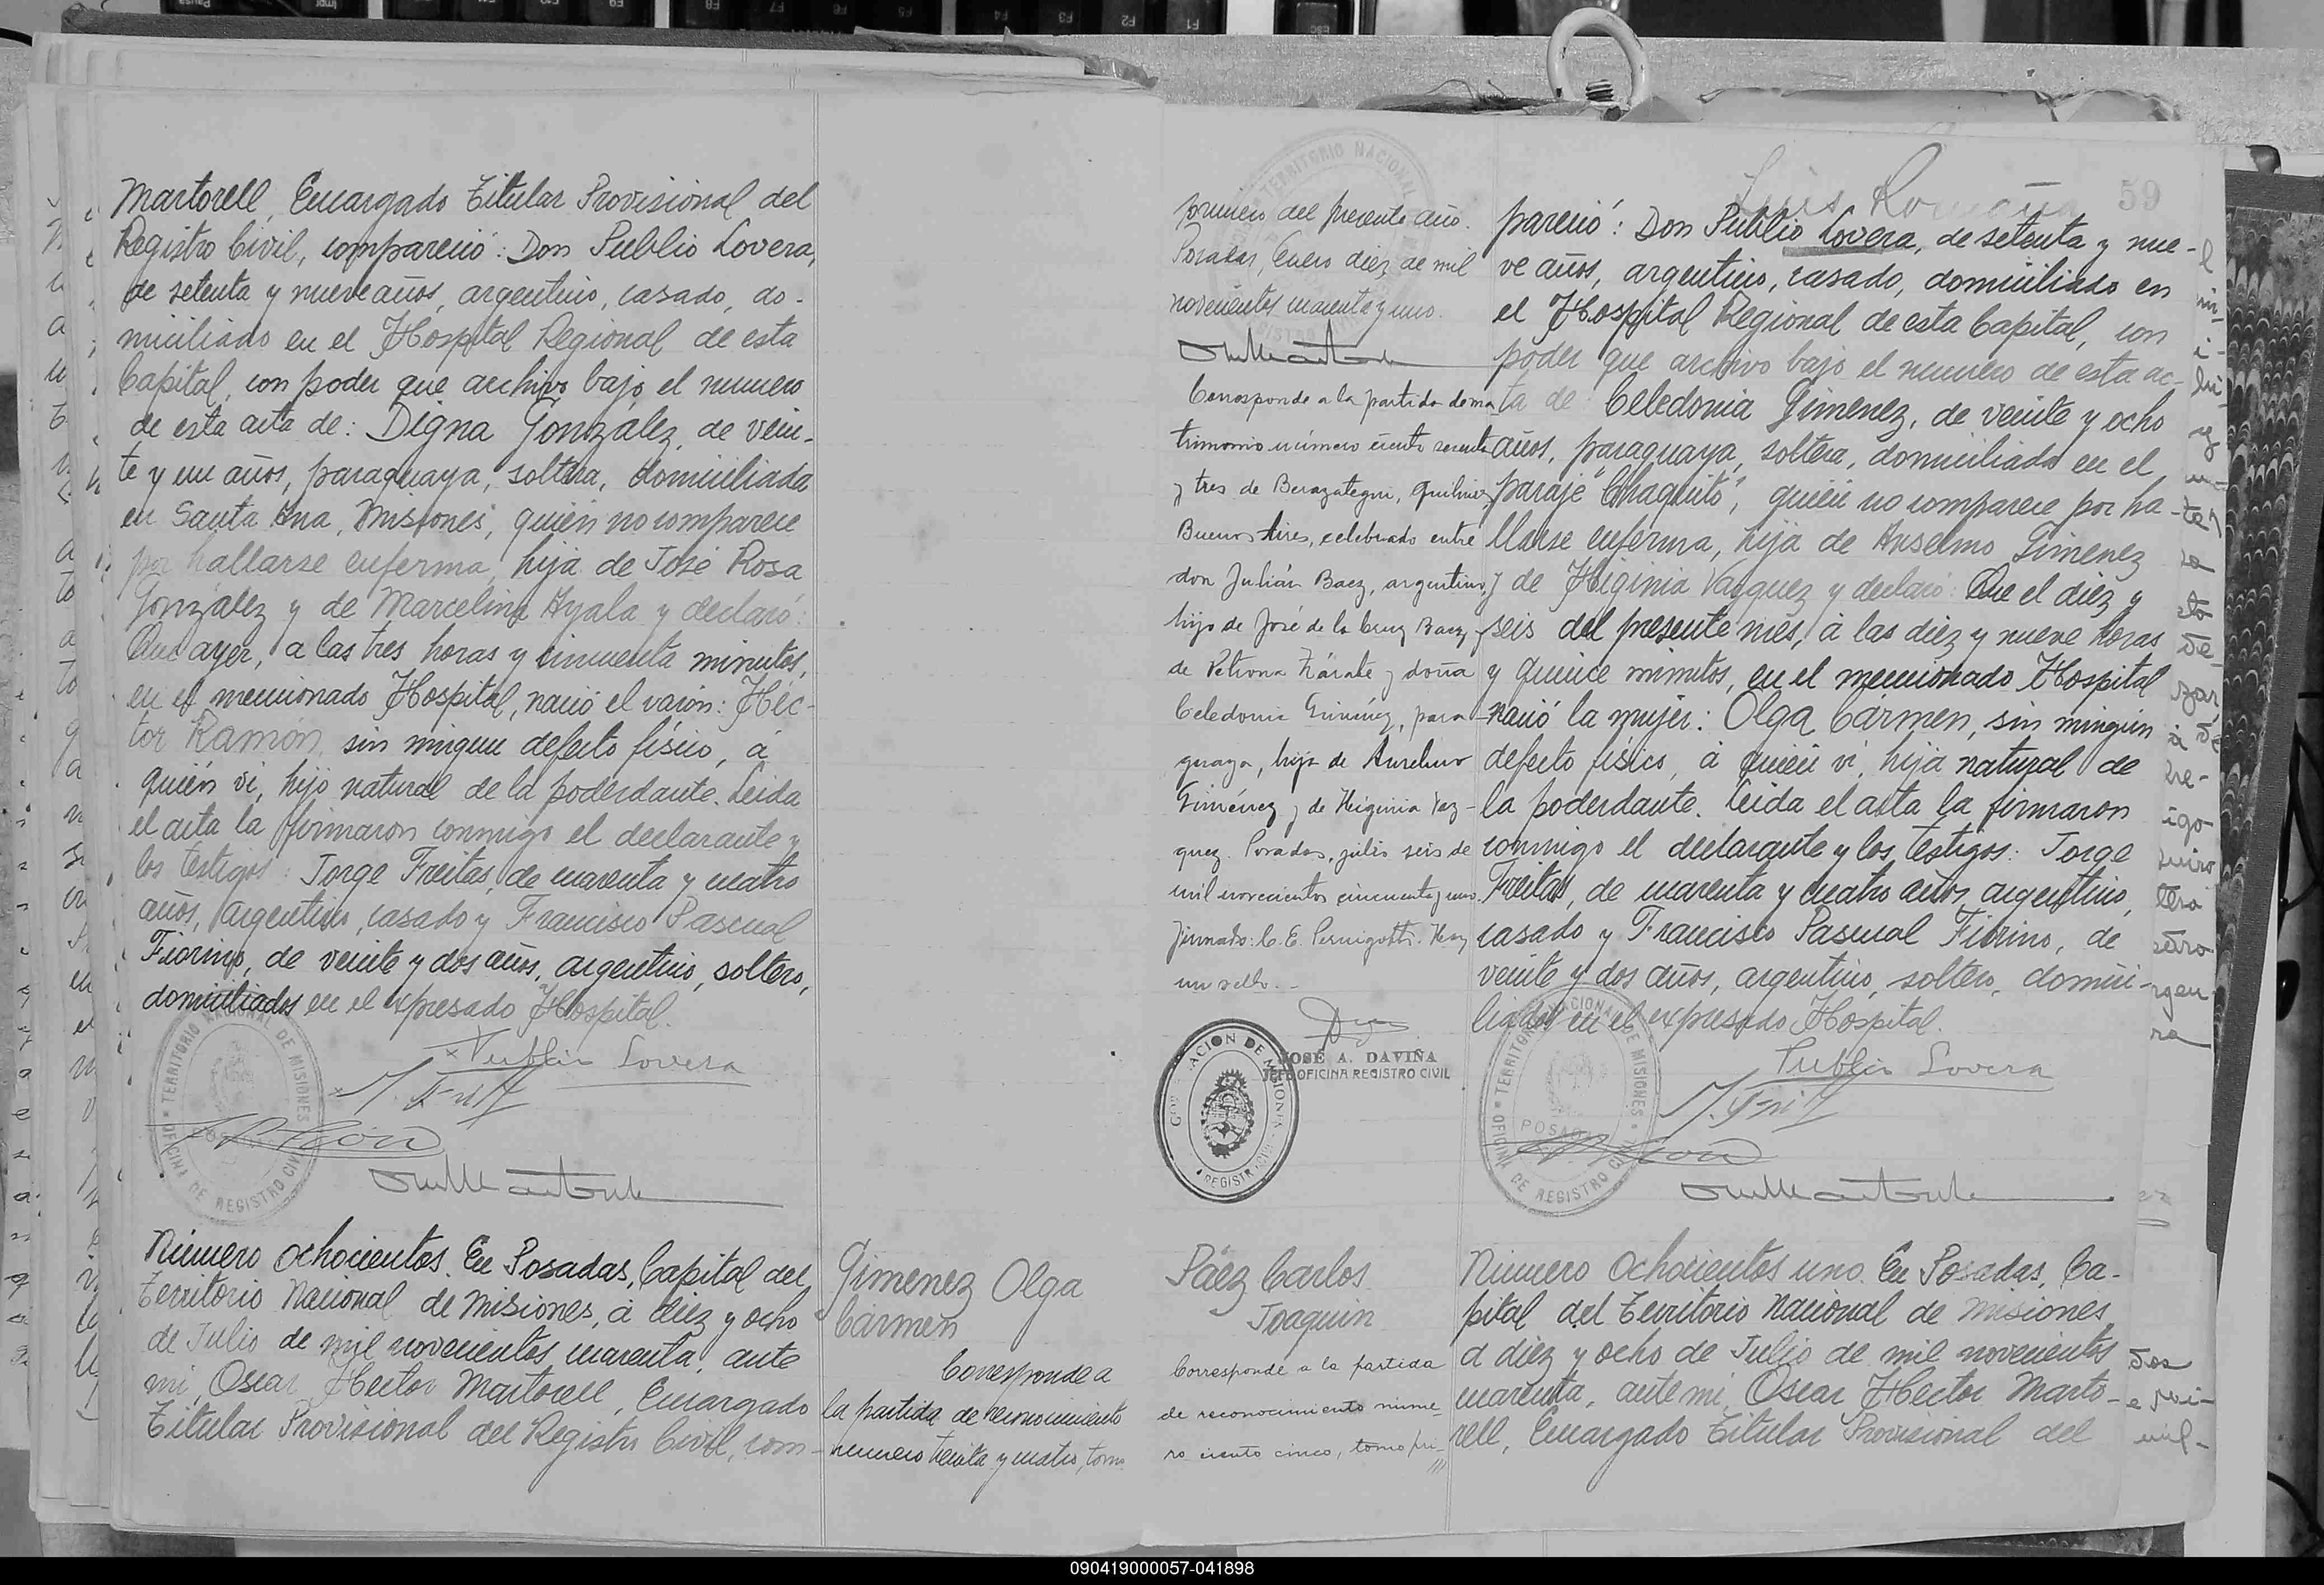 Martorell, Encargado Titular Provisional del
Registro Civil, compareció: Don Publio Lovera,
de setenta y nueve años, argentino, casado, do-
miciliado en el Hospital Regional de esta
Capital, con poder que archivo bajo el numero
de esta acta de: Digna González, de vein-
te y un años, paraguaya, soltera, domiciliada
en Santa Ana, Misiones, quién no comparece
por hallarse enferma, hija de José Rosa
González y de Marcelina Ayala y declaró:
Que ayer, a las tres horas y cincuenta minutos,
en el mencionado Hospital, nació el varón: Héc-
tor Ramón, sin ningun defecto físico, á
quién ví, hijo natural de la poderdante. Leida
el acta la firmaron conmigo el declarante y
los testigos: Jorge Freitas, de cuarenta y cuatro
años, argentino, casado y Francisco Pascual
Fiorino, de veinte y dos años, argentino, soltero,
domiciliados en el expresado Hospital.
Publio Lovera
TERRITORIO NACIONAL DE MISIONES
OFICINA DE REGISTRO CIVIL
Número ochocientos. En Posadas, Capital del
Territorio Nacional de Misiones, á diez y ocho
de Julio de mil novecientos cuarenta, ante
mi, Oscar Hector Martorell, Encargado
Titular Provisional del Registro Civil, com-
Gimenez Olga
Carmen
Corresponde a
la partida de reconocimiento
numero treinta y cuatro, tomo
primero del presente año.
Posadas, Enero diez de mil
novecientos cuarenta y uno.
Corresponde a la partida de ma
trimonio número ciento sesenta
y tres de Berazategui, Quilmes,
Buenos Aires, celebrado entre
don Julián Baez, argentino,
hijo de José de la Cruz Baez y
de Petrona Zárate y doña
Celedonia Giménez, para
guaya, hija de Aurelino
Giménez y de Higinia Vaz-
quez. Posadas, julio seis de
mil novecientos cincuenta y uno.
Firmado: C. E. Pernigotti. Hay
un sello.-
JOSÉ A. DAVIÑA
JEFE OFICINA REGISTRO CIVIL
59
pareció: Don Publio Lovera, de setenta y nue-
ve años, argentino, casado, domiciliado en
el Hospital Regional de esta Capital, con
poder que archivo bajo el numero de esta ac-
ta de: Celedonia Gimenez, de veinte y ocho
años, paraguaya, soltera, domiciliada en el
paraje "Chaquito", quién no comparece por ha-
llarse enferma, hija de Anselmo Gimenez
y de Higinia Vazquez y declaró: Que el diez y
seis del presente mes, á las diez y nueve horas
y quince minutos, en el mencionado Hospital
nació la mujer: Olga Carmen, sin ningún
defecto físico, á quién ví, hija natural de
la poderdante. Leida el acta la firmaron
conmigo el declarante y los testigos: Jorge
Freitas, de cuarenta y cuatro años, argentino,
casado y Francisco Pascual Fiorino, de
veinte y dos años, argentino, soltero, domici-
liados en el expresado Hospital.
Publio Lovera
TERRITORIO NACIONAL DE MISIONES
POSADAS
OFICINA DE REGISTRO CIVIL
Páez Carlos
Joaquin
Corresponde a la partida
de reconocimiento núme-
ro ciento cinco, tomo pri-
Número ochocientos uno. En Posadas, Ca-
pital del Territorio Nacional de Misiones,
a diez y ocho de Julio de mil novecientos
cuarenta, ante mi, Oscar Hector Marto-
rell, Encargado Titular Provisional del
090419000057-041898